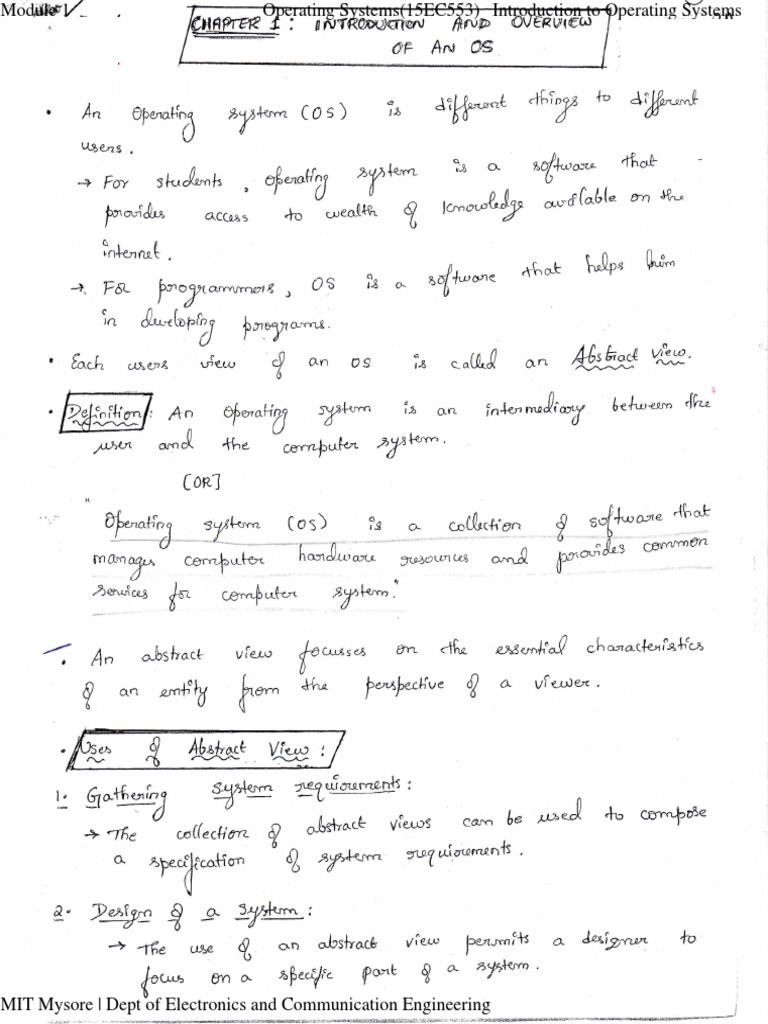 Module V Operating Systems(15EC553) Introduction to Operating Systems
CHAPTER 1: INTRODUCTION AND OVERVIEW
OF AN OS
• An Operating system (OS) is different things to different
users.
→ For students, Operating system is a software that
provides access to wealth of knowledge available on the
internet.
→ For programmers, OS is a software that helps him
in developing programs.
• Each users view of an OS is called an Abstract View.
• Definition: An Operating system is an intermediary between the
user and the computer system.
[OR]
"Operating system (OS) is a collection of software that
manages computer hardware resources and provides common
services for computer system."
• An abstract view focusses on the essential characteristics
of an entity from the perspective of a viewer.
• Uses of Abstract View:
1. Gathering system requirements:
→ The collection of abstract views can be used to compose
a specification of system requirements.
2. Design of a system:
→ The use of an abstract view permits a designer to
focus on a specific part of a system.
MIT Mysore | Dept of Electronics and Communication Engineering